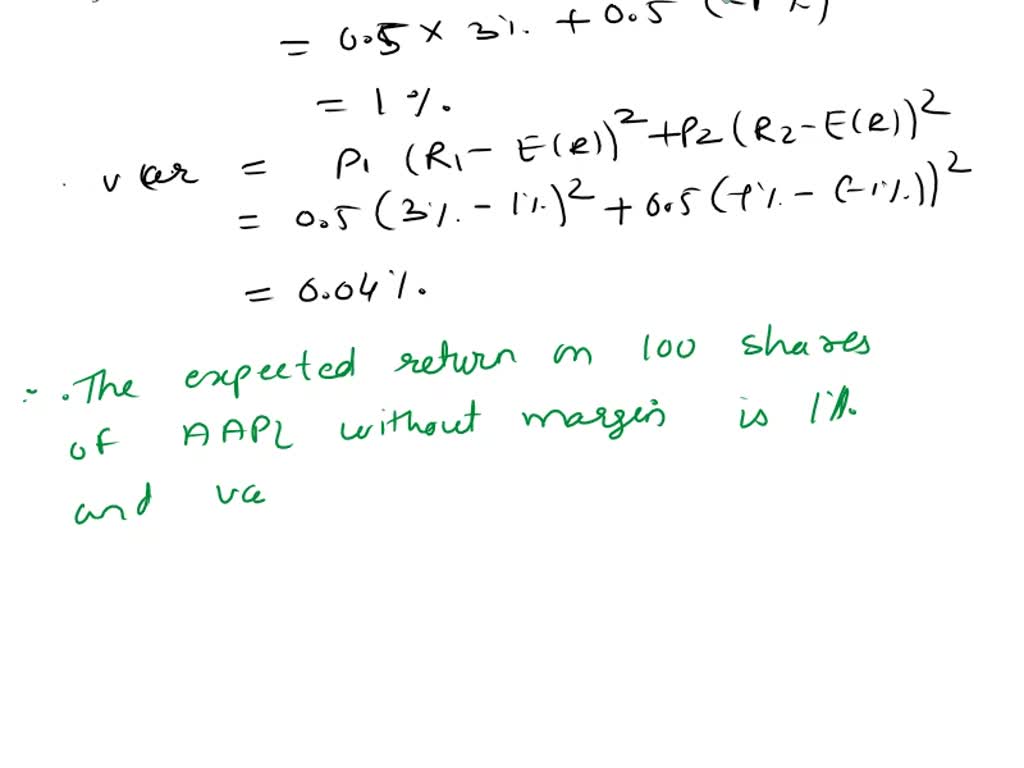 = 0.5 × 3%. + 0.5
= 1 %.
var = P1 (R1 - E(R))² + P2 (R2 - E(R))²
= 0.5 (3% - 1%)² + 0.5 (-1% - (-1%))²
= 0.04%.
∴ The expected return on 100 shares
of AAPL without margin is 1%
and va